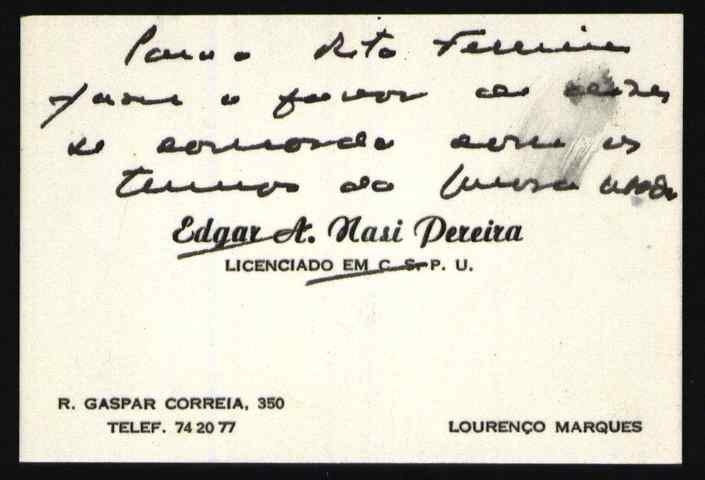 Para o Rita Ferreira
favor de
se concorda com os
termos da
Edgar A. Nasi Pereira
LICENCIADO EM C. S. P. U.
R. GASPAR CORREIA, 350
TELEF. 74 20 77
LOURENÇO MARQUES